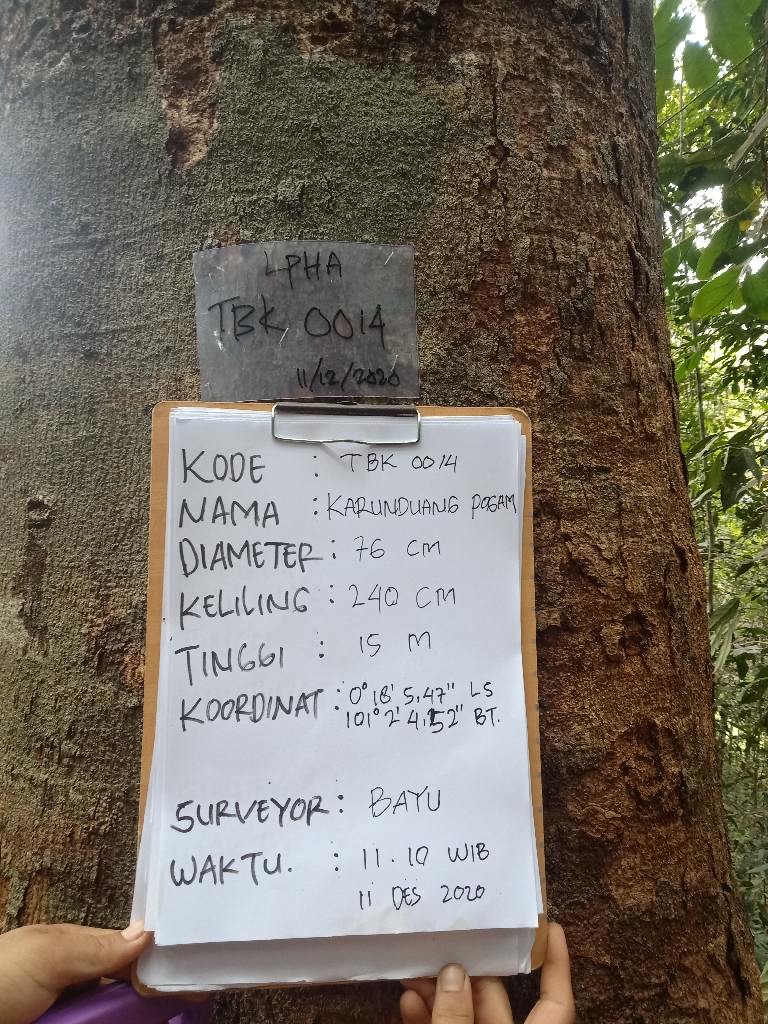 LPHA
TBK 0014
11/12/2020
KODE : TBK 0014
NAMA : KARUNDUANG POGAM
DIAMETER : 76 CM
KELILING : 240 CM
TINGGI : 15 M
KOORDINAT : 0° 18' 5.47" LS
101° 2' 4.52" BT.
SURVEYOR : BAYU
WAKTU. : 11.10 WIB
11 DES 2020